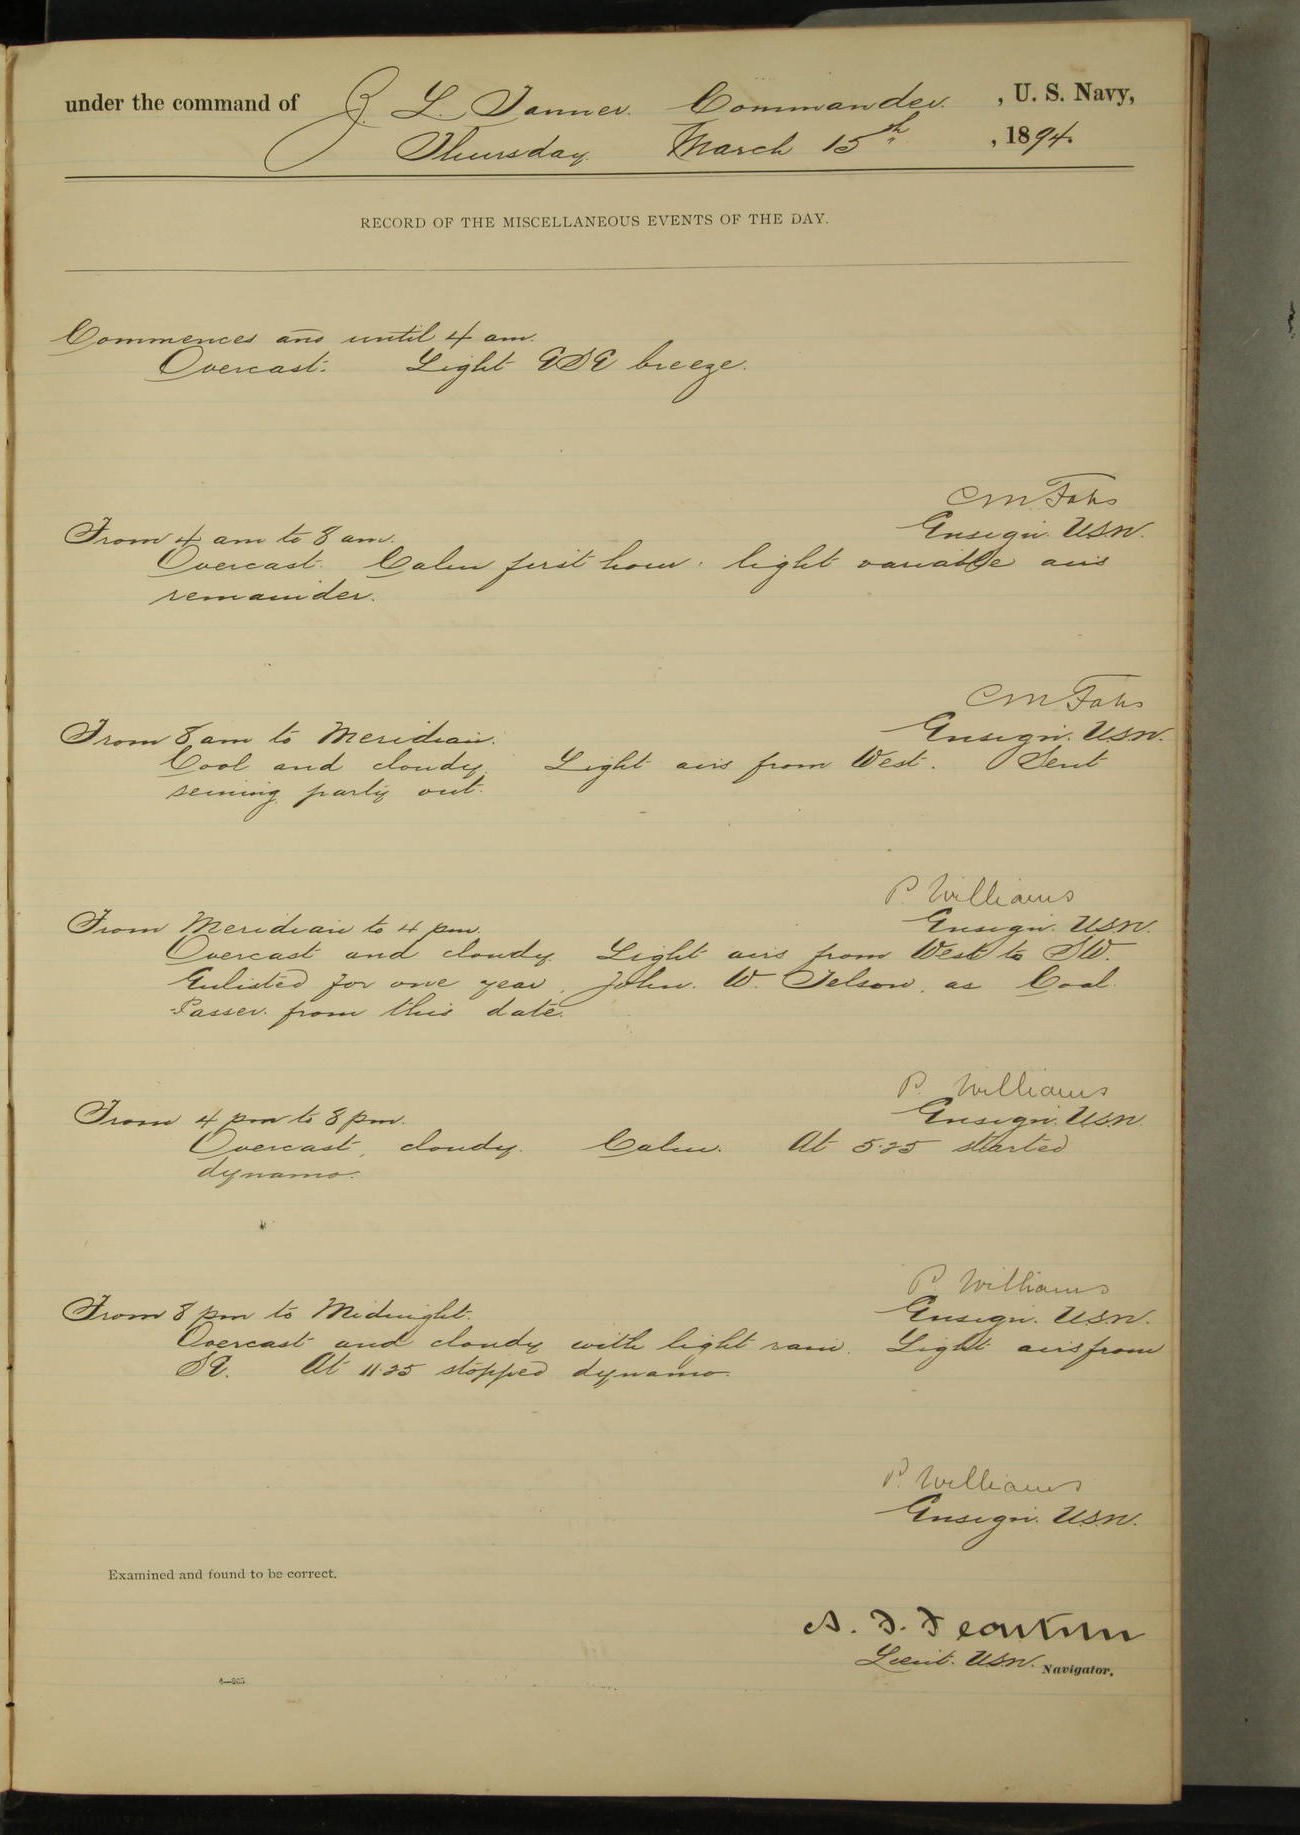 under the command of Z. L. Tanner. Commander. , U. S. Navy,
Thursday. March 15th , 1894.
RECORD OF THE MISCELLANEOUS EVENTS OF THE DAY.
Commences and until 4 am.
Overcast. Light ESE breeze.
C M Fahs
Ensign. USN.
From 4 am to 8 am.
Overcast. Calm first hour. light variable airs
remainder.
C M Fahs
Ensign. USN.
From 8 am to Meridian.
Cool and cloudy. Light airs from West. Sent
seining party out.
P. Williams
Ensign. USN.
From Meridian to 4 pm.
Overcast and cloudy. Light airs from West to SW.
Enlisted for one year, John. W. as Coal
Passer. from this date.
P. Williams
Ensign. USN.
From 4 pm to 8 pm.
Overcast, cloudy. Calm. At 5.25 started
dynamo.
P Williams
Ensign. USN.
From 8 pm to Midnight.
Overcast and cloudy with light rain. Light airs from
SE. At 11.25 stopped dynamo.
P. Williams
Ensign. USN.
Examined and found to be correct.
Lieut. USN. Navigator.